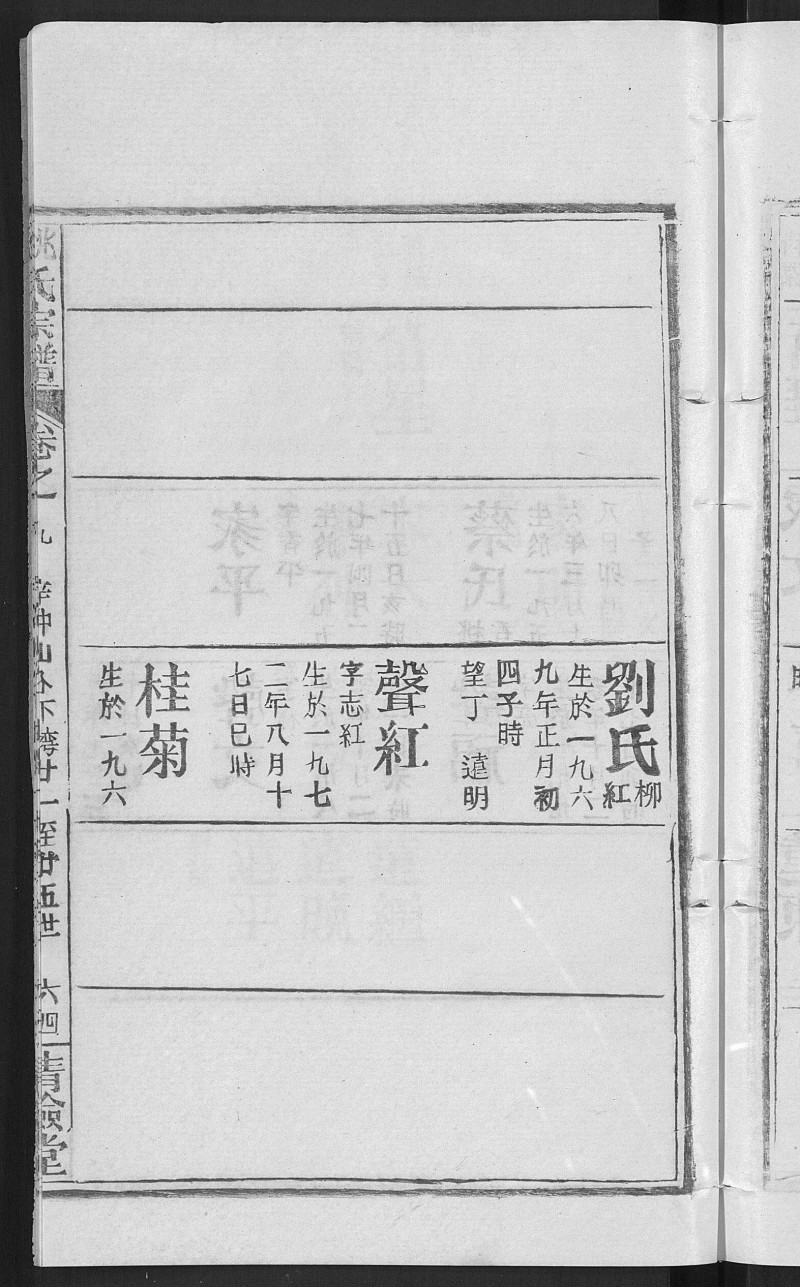 劉氏
柳
紅
生於一九六
九年正月初
四子時
望丁 遠明
聲紅
字志紅
生於一九七
二年八月十
七日巳時
桂菊
生於一九六
姚氏宗譜
卷之九
下塆廿一至廿五世
六四
清儉堂